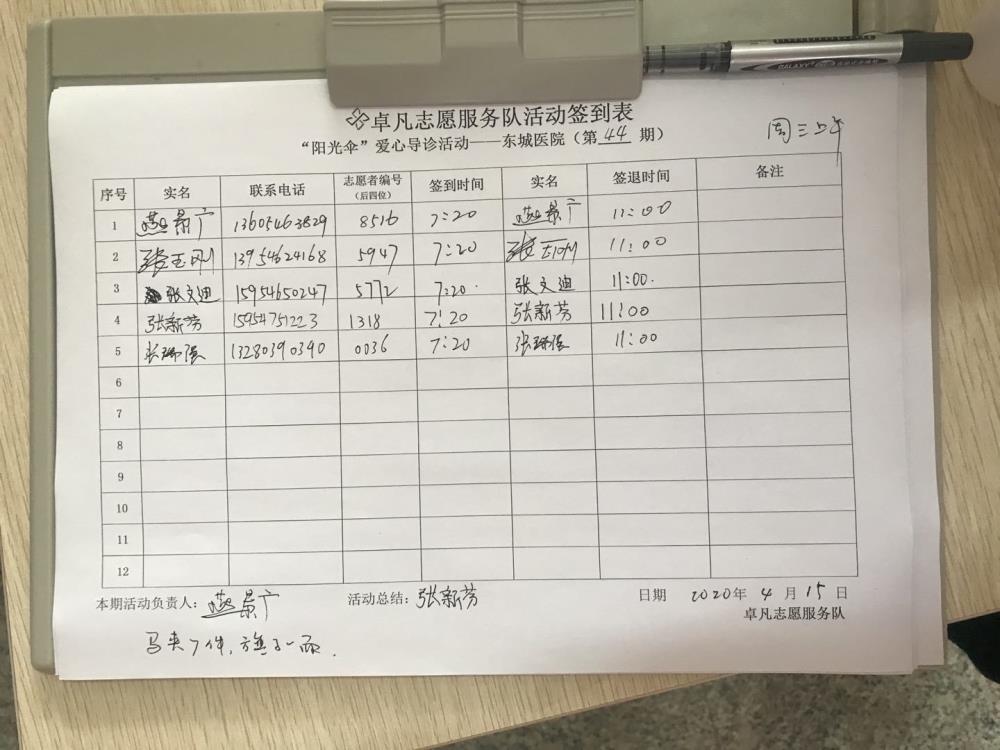 卓凡志愿服务队活动签到表
周三上午
“阳光伞”爱心导诊活动——东城医院（第 44 期）
序号 实名 联系电话 志愿者编号（后四位） 签到时间 实名 签退时间 备注
1 燕景广 13605463829 8516 7:20 燕景广 11:00
2 张玉刚 13954624168 5947 7:20 张玉刚 11:00
3 张文迪 15954650247 5772 7:20. 张文迪 11:00.
4 张新芳 15954751223 1318 7:20 张新芳 11:00
5 张 13280390390 0036 7:20 张 11:00
6
7
8
9
10
11
12
本期活动负责人： 燕景广 活动总结： 张新芳 日期 2020年 4 月 15 日
卓凡志愿服务队
马夹7件，旗子一面.